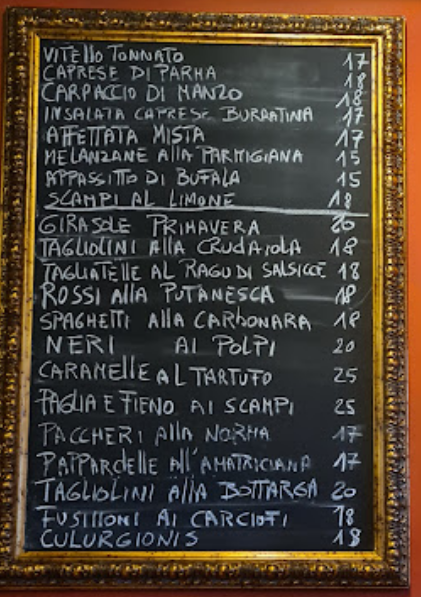 VITELLO TONNATO 17
CAPRESE DI PARMA 18
CARPACCIO DI MANZO 18
INSALATA CAPRESE BURRATINA 17
AFFETTATA MISTA 17
MELANZANE ALLA PARMIGIANA 15
APPASSITTO DI BUFALA 15
SCAMPI AL LIMONE 18
GIRASOLE PRIMAVERA 20
TAGLIOLINI ALLA CRUDAIOLA 18
TAGLIATELLE AL RAGU DI SALSICCE 18
ROSSI ALLA PUTANESCA 18
SPAGHETTI ALLA CARBONARA 18
NERI AI POLPI 20
CARAMELLE AL TARTUFO 25
PAGLIA E FIENO AI SCAMPI 25
PACCHERI ALLA NORMA 17
PAPPARDELLE ALL'AMATRICIANA 17
TAGLIOLINI ALLA BOTTARGA 20
FUSILLONI AI CARCIOFI 18
CULURGIONIS 18